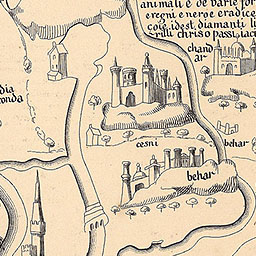 animali e de varie for
eregni e neroe eradice
coie idest diamanti l
rilli chriso passi, iaci
chand
ar
dia
onda
cesni
behar
behar